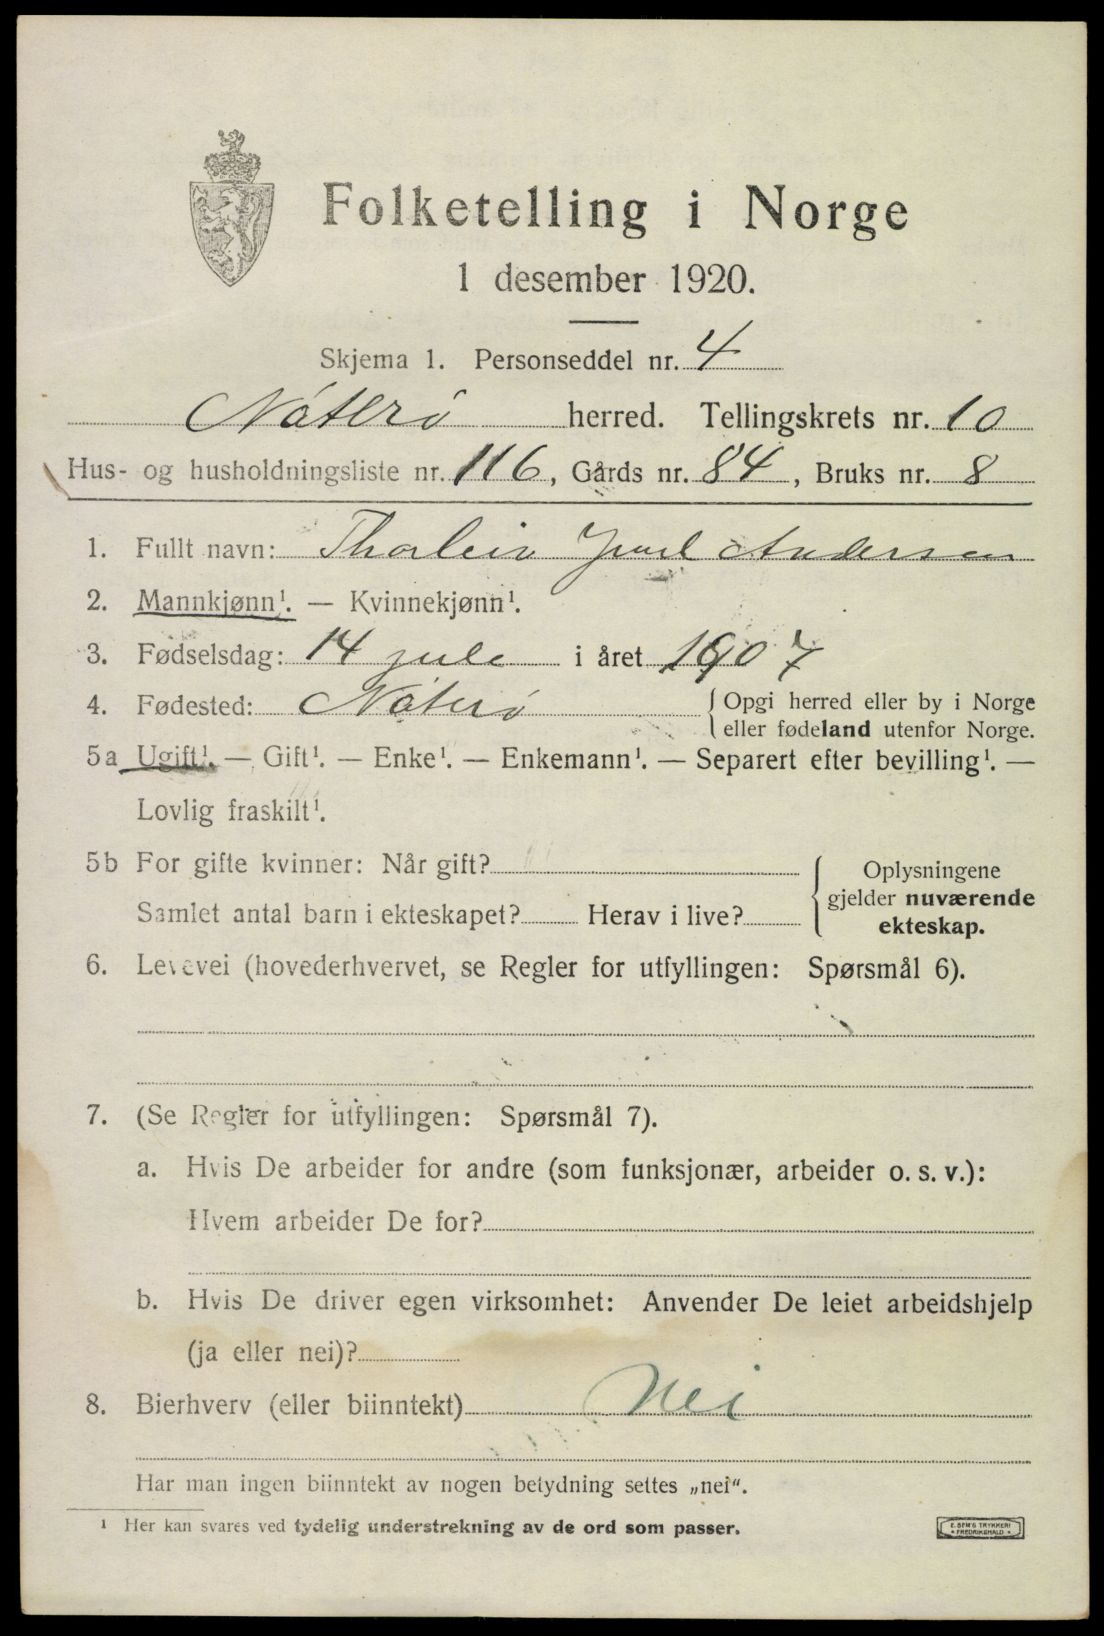 Folketelling i Norge
1 desember 1920.
Skjema 1. Personseddel nr. 4
Nøterø herred. Tellingskrets nr. 10
Hus- og husholdningsliste nr. 116, Gårds nr. 84, Bruks nr. 8
1. Fullt navn: Thorleiv Juul Andersen
2. Mannkjønn¹. — Kvinnekjønn¹.
3. Fødselsdag: 14 jule i året 1907
4. Fødested: Nøterø { Opgi herred eller by i Norge
eller fødeland utenfor Norge.
5a Ugift¹. — Gift¹. — Enke¹. — Enkemann¹. — Separert efter bevilling¹. —
Lovlig fraskilt¹.
5b For gifte kvinner: Når gift?
Samlet antal barn i ekteskapet? Herav i live?
{ Oplysningene
gjelder nuværende
ekteskap.
6. Levevei (hovederhvervet, se Regler for utfyllingen: Spørsmål 6).
7. (Se Regler for utfyllingen: Spørsmål 7).
a. Hvis De arbeider for andre (som funksjonær, arbeider o. s. v.):
Hvem arbeider De for?
b. Hvis De driver egen virksomhet: Anvender De leiet arbeidshjelp
(ja eller nei)?
8. Bierhverv (eller biinntekt) Nei
Har man ingen biinntekt av nogen betydning settes „nei“.
¹ Her kan svares ved tydelig understrekning av de ord som passer.
E. SEM'S TRYKKERI
• FREDRIKSHALD •